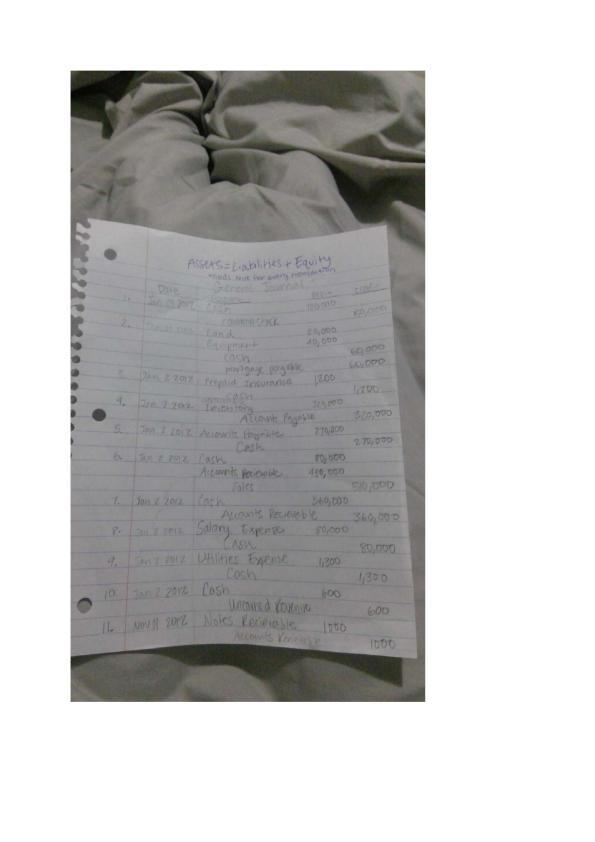 Assets = Liabilities + Equity
General Journal
Date
1. Jan 2012 Cash 100,000
common stock
2. Land
Equipment 40,000
Cash 60,000
mortgage payable
3. Jan 2 2012 Prepaid Insurance 1200
Cash 1,200
4. Jan 2 2012 Inventory
Accounts Payable 320,000
5. Jan 2 2012 Accounts Payable 270,000
Cash 270,000
6. Jan 2 2012 Cash 80,000
Accounts Recievable
Sales
7. Jan 2 2012 Cash 360,000
Accounts Recievable 360,000
8. Jan 2 2012 Salary Expense 80,000
Cash 80,000
9. Jan 2 2012 Utilities Expense 1,300
Cash 1,300
10. Jan 2 2012 Cash 600
Unearned Revenue 600
11. Nov 2012 Notes Recievable 1000
Accounts Recievable 1000